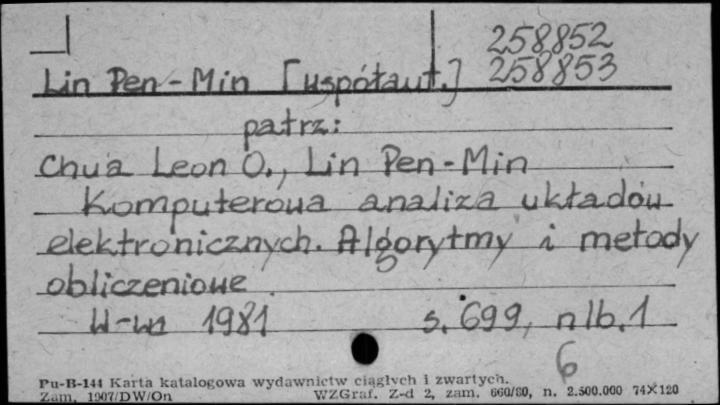 258852
Lin Pen-Min [współaut.] 258853
patrz:
Chua Leon O., Lin Pen-Min
Komputerowa analiza układów
elektronicznych. Algorytmy i metody
obliczeniowe
W-wa 1981 s. 699, nlb. 1
6
Pu-B-144 Karta katalogowa wydawnictw ciągłych i zwartych.
Zam. 1907/DW/On WZGraf. Z-d 2, zam. 660/80, n. 2.500.000 74×120